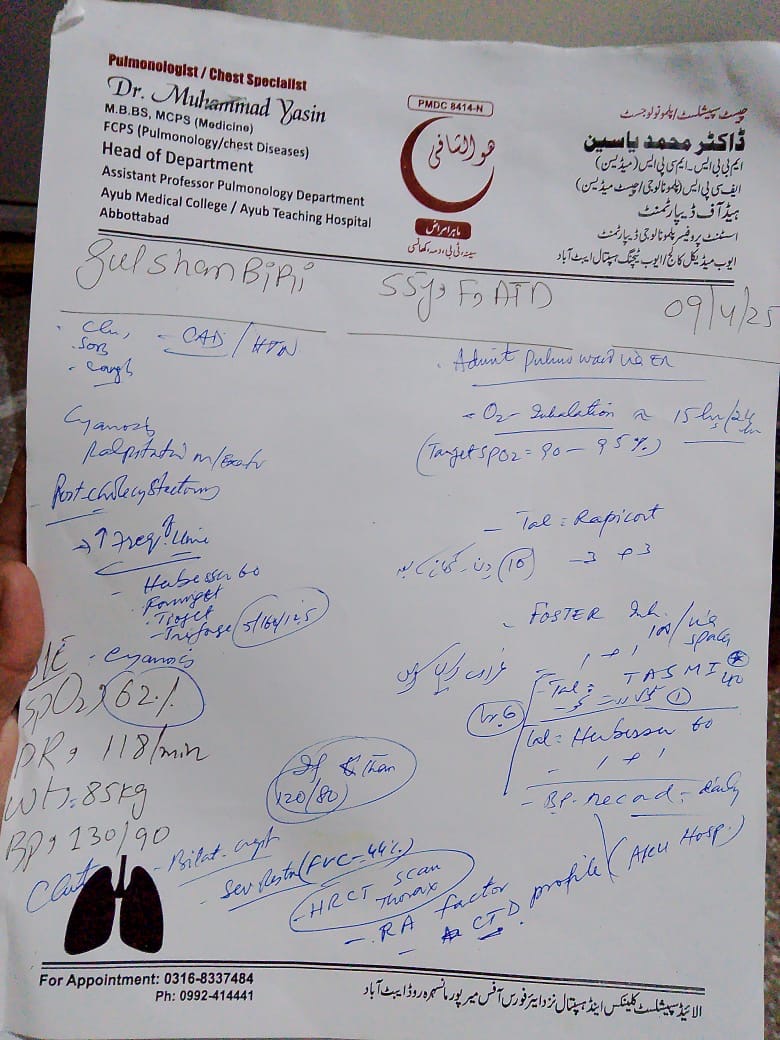 Pulmonologist / Chest Specialist
Dr. Muhammad Yasin
M.B.BS, MCPS (Medicine)
FCPS (Pulmonology/chest Diseases)
Head of Department
Assistant Professor Pulmonology Department
Ayub Medical College / Ayub Teaching Hospital
Abbottabad
PMDC 8414-N
ھوالشافی
ماہر امراض
سینہ، ٹی بی، دمہ، کھانسی
چیسٹ سپیشلسٹ/پلمونولوجسٹ
ڈاکٹر محمد یاسین
ایم بی بی ایس۔ایم سی پی ایس (میڈیسن)
ایف سی پی ایس (پلمونالوجی/چیسٹ میڈیسن)
ہیڈ آف ڈیپارٹمنٹ
اسسٹنٹ پروفیسر پلمونالوجی ڈیپارٹمنٹ
ایوب میڈیکل کالج/ایوب ٹیچنگ ہسپتال ایبٹ آباد
Gulshan BiBi 55y, F, ATD 09/4/25
SOB
- Cough
- CAD / HTN
Cyanosis
Palpitation
Post-cholecystectomy
→ ↑ Freq. Urine
- Herbesser 60
5/160/12.5
- Cyanosis
SpO2, 62%
PR, 118/min
Wt, 85kg
Bp, 130/90
Chest
- Bilat. crept
- Sev Restr (FVC-44%)
- HRCT Scan Thorax
- RA factor
- CTD profile (AKU Hosp.)
Admit pulmo ward via ER
- O2 Inhalation ≈ 15 hrs/24 hr
(Target SPO2 = 90 - 95%)
- Tab = Rapicort
3 + 3
- FOSTER Inh. 100/via spacer
1 + 1
- Tab = TASMI 40
Tab = Herbesser 60
- 1 + 1
- BP. record = daily
If < than
120/80
For Appointment: 0316-8337484
Ph: 0992-414441
الائیڈ سپیشلسٹ کلینکس اینڈ ہسپتال نزد ایئر فورس آفس میر پور مانسہرہ روڈ ایبٹ آباد